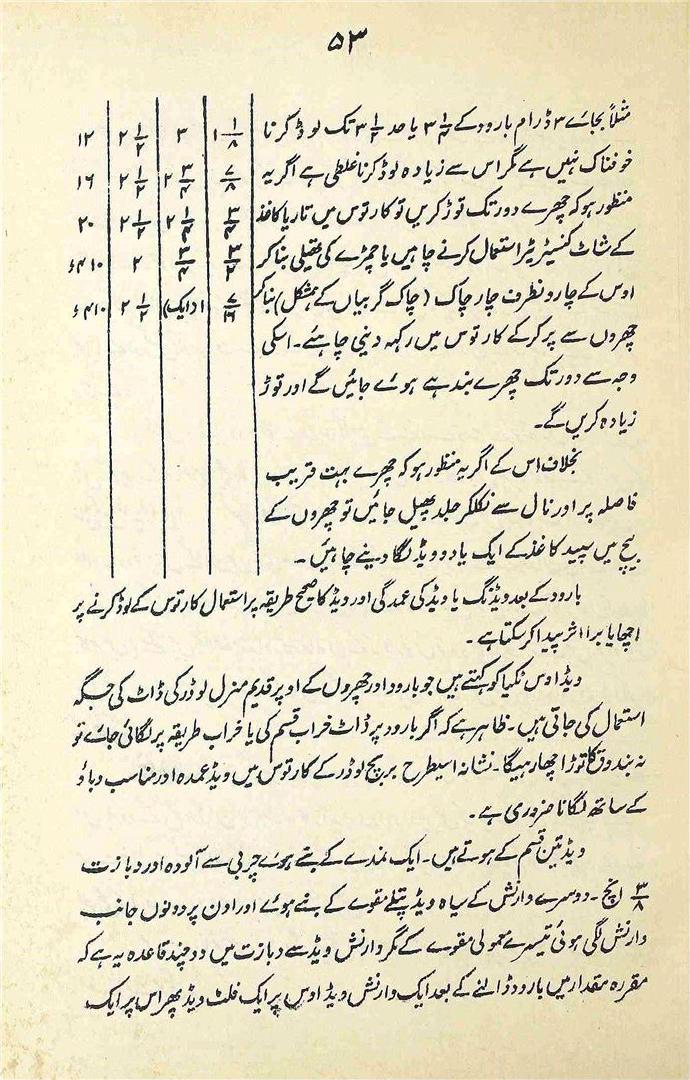 ۵۳
مثلاً بجائے ۳ ڈرام بارود کے ۳ ۱/۴ یا حد ۳ ۱/۲ تک لوڈ کرنا
خوفناک نہیں ہے مگر اس سے زیادہ لوڈ کرنا غلطی ہے اگر یہ
منظور ہو کہ چھرے دور تک توڑ کریں تو کارتوس میں تار یا کاغذ
کے شاٹ کنسیٹریٹر استعمال کرنے چاہیں یا چمڑے کی تھیلی بنا کر
اوس کے چارونطرف چار چاک (چاک گریباں کے ہمشکل) بنا کر
چھروں سے پر کر کے کارتوس میں رکہہ دینی چاہئے۔ اسکی
وجہ سے دور تک چھرے بندہے ہوے جائیں گے اور توڑ
زیادہ کریں گے۔
بخلاف اس کے اگر یہ منظور ہو کہ چھرے بہت قریب
فاصلہ پر اور نال سے نکلکر جلد پھیل جائیں تو چھروں کے
بیچ میں سپید کاغذ کے ایک یا دو ویڈ لگا دینے چاہئیں۔
۱ ۱/۸ | ۳ | ۲ ۱/۲ | ۱۲
۷/۸ | ۲ ۳/۴ | ۲ ۱/۲ | ۱۶
۳/۴ | ۲ ۱/۴ | ۲ ۱/۲ | ۲۰
۳/۴ | ۳/۴ | ۲ | ۴۱۰ء
۷/۱۶ | ۱ (ایک) | ۲ ۱/۲ | ۴۱۰ء
بارود کے بعد ویڈنگ یا ویڈ کی عمدگی اور ویڈ کا صحیح طریقہ پر استعمال کارتوس کے لوڈ کرنے پر
اچھا یا برا اثر پیدا کر سکتا ہے۔
ویڈ اوس ٹکیا کو کہتے ہیں جو بارود اور چھروں کے اوپر قدیم منزل لوڈر کی ڈاٹ کی جگہ
استعمال کی جاتی ہیں۔ ظاہر ہے کہ اگر بارود پر ڈاٹ خراب قسم کی یا خراب طریقہ پر لگائی جاے تو
نہ بندوق کا توڑ اچھا رہیگا۔ نشانہ اسیطرح بریچ لوڈر کے کارتوس میں ویڈ عمدہ اور مناسب دباؤ
کے ساتھ لگانا ضروری ہے۔
ویڈ تین قسم کے ہوتے ہیں۔ ایک نمدے کے بنے ہوے چربی سے آلودہ اور دبازت
۳/۸ انچ۔ دوسرے وارنش کے سیاہ ویڈ پتلے مقوے کے بنے ہوئے اور اون پر دونوں جانب
وارنش لگی ہوئی تیسرے معمولی مقوے کے مگر وارنش ویڈ سے دبازت میں دوچند قاعدہ یہ ہے کہ
مقررہ مقدار میں بارود ڈالنے کے بعد ایک وارنش ویڈ اوس پر ایک فلٹ ویڈ پھر اس پر ایک